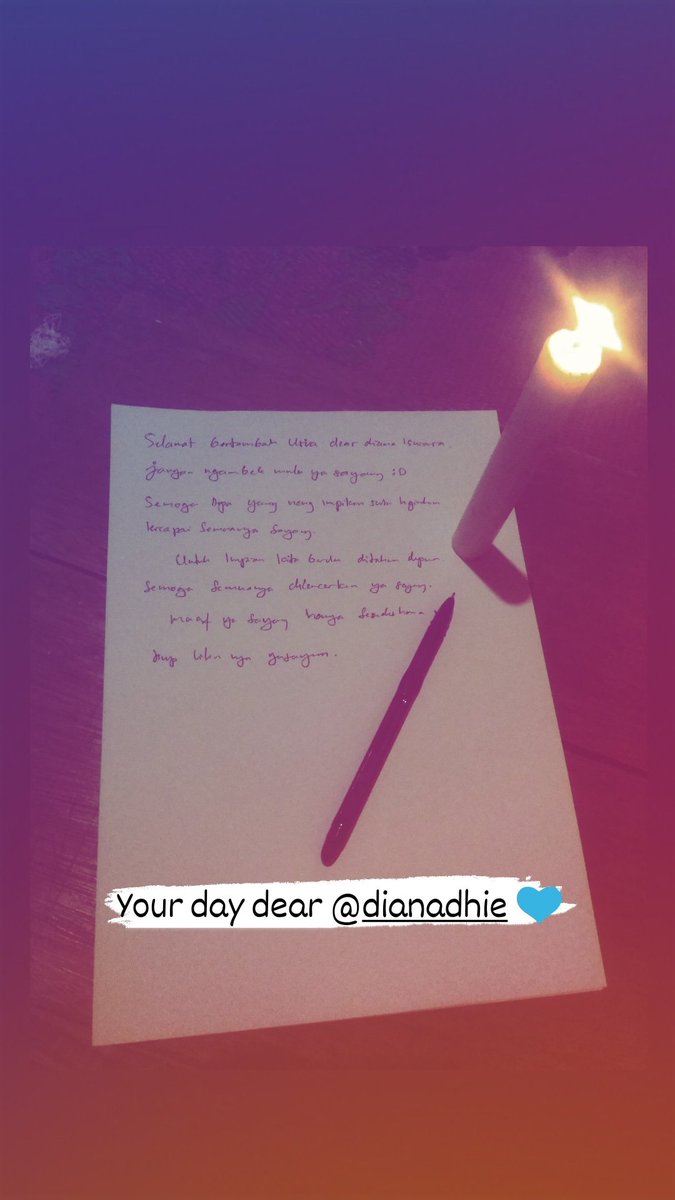 Selamat bertambah Usia dear diana Iswara
Jangan ngambek mulu ya sayang :D
Semoga Apa yang neng impikan
tercapai Semuanya Sayang.
Untuk Impian kita ditahun depan
Semoga Semuanya dilancarkan ya sayang.
maaf ya Sayang hanya Sesederhana
tiup lilin nya
Your day dear @dianadhie